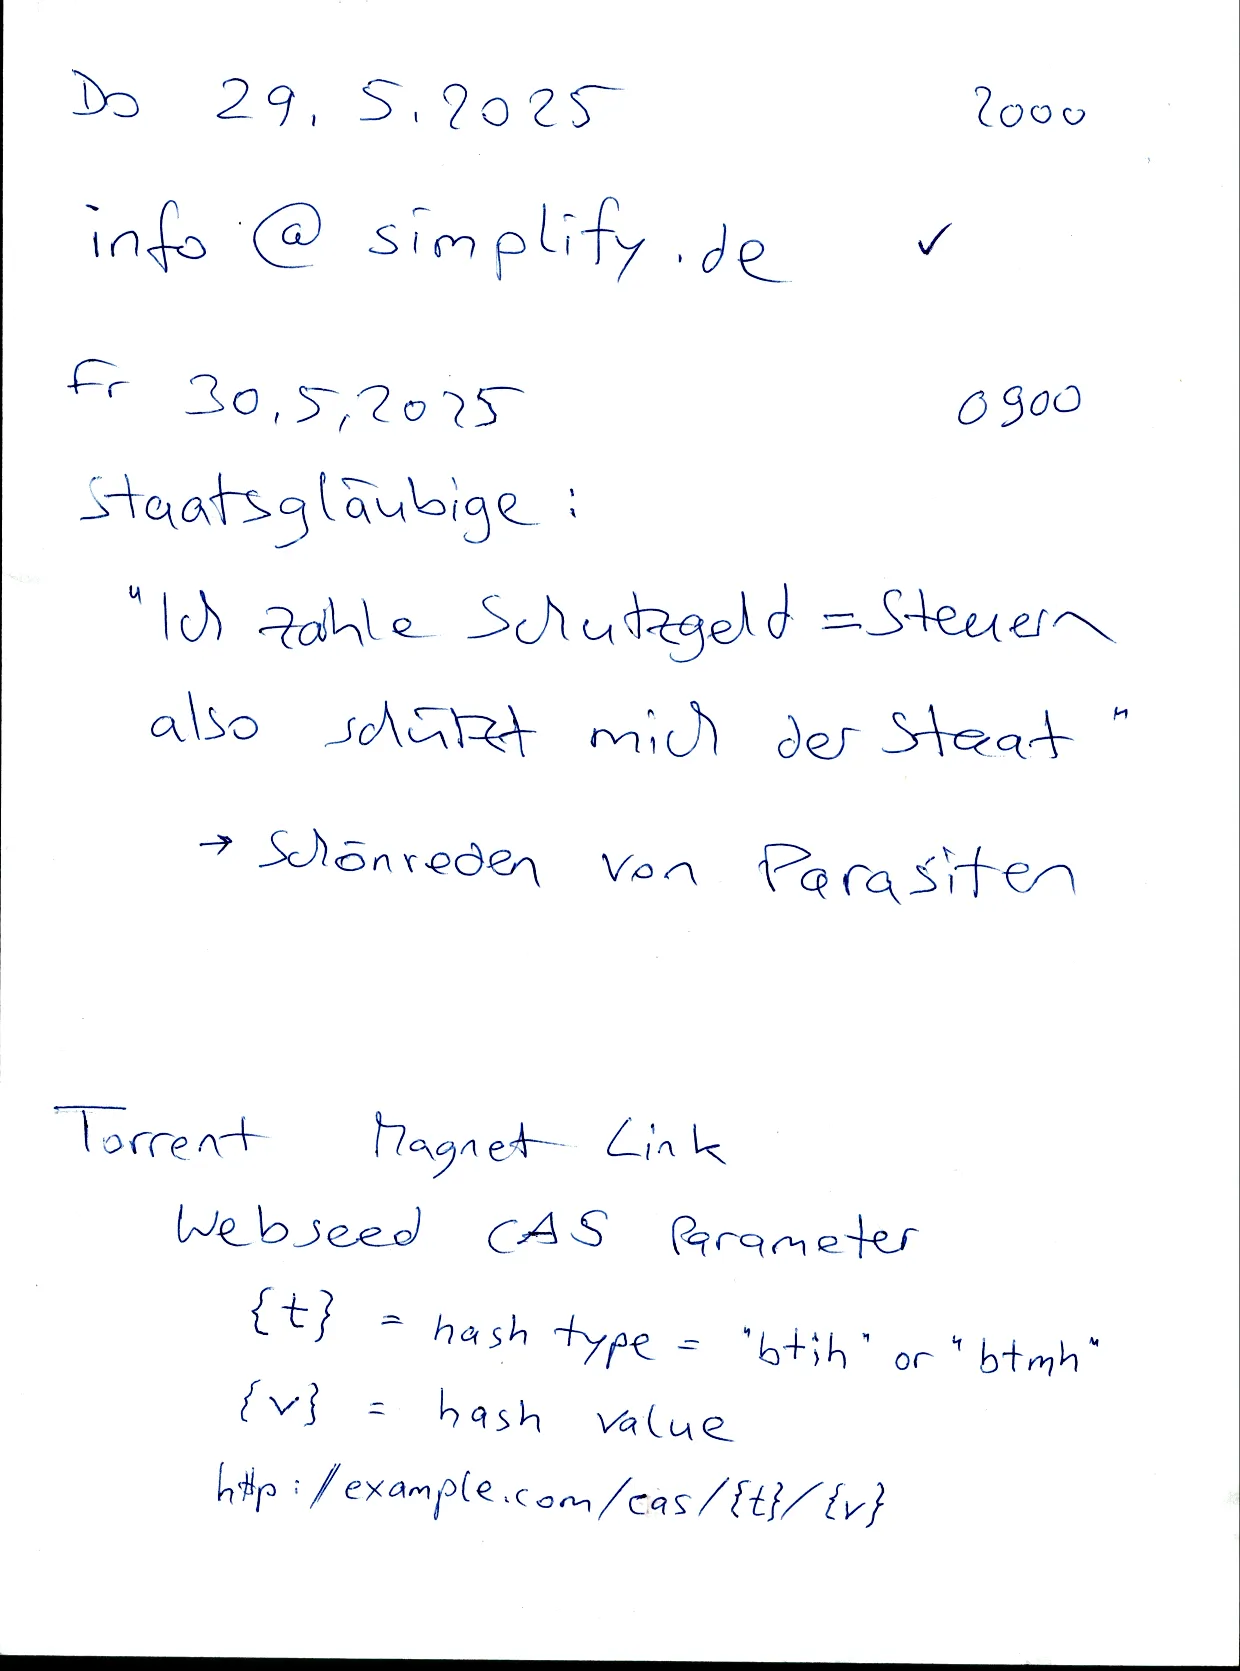 Do 29.5.2025 2000
info@simplify.de ✓
Fr 30.5.2025 0900
Staatsgläubige:
"Ich zahle Schutzgeld = Steuern
also schützt mich der Staat"
→ Schönreden von Parasiten
Torrent Magnet Link
Webseed CAS Parameter
{t} = hash type = "btih" or "btmh"
{v} = hash value
http://example.com/cas/{t}/{v}